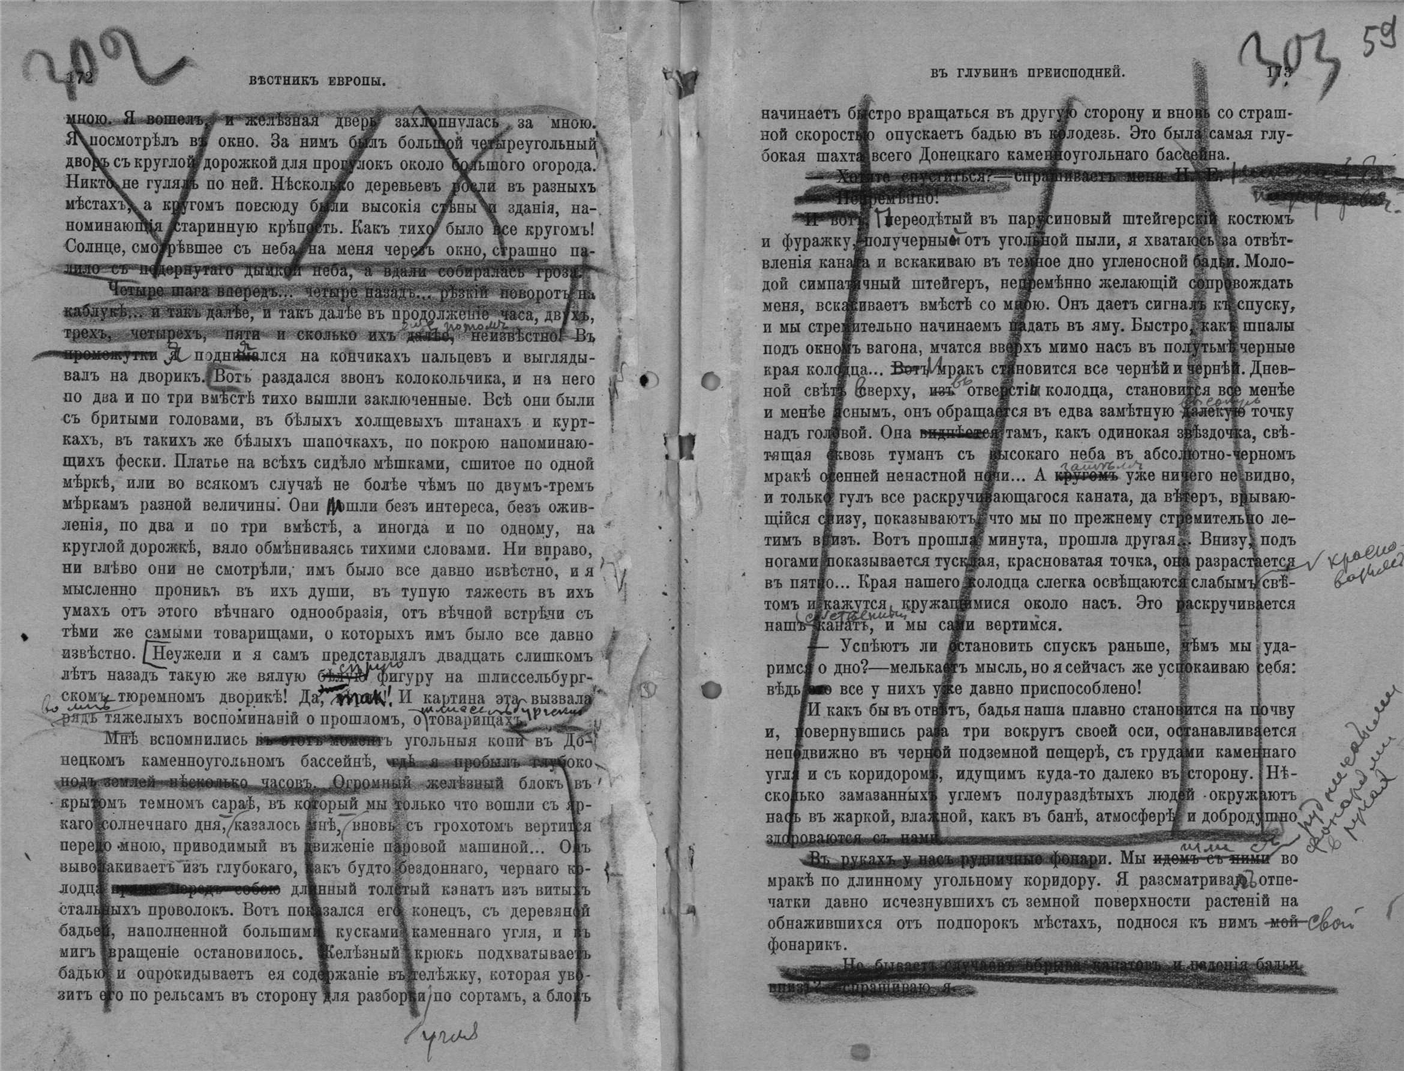 302
172
ВѢСТНИКЪ ЕВРОПЫ.
мною. Я вошелъ, и желѣзная дверь захлопнулась за мною.
Я посмотрѣлъ въ окно. За нимъ былъ большой четыреугольный
дворъ съ круглой дорожкой для прогулокъ около большого огорода.
Никто не гулялъ по ней. Нѣсколько деревьевъ росли въ разныхъ
мѣстахъ, а кругомъ повсюду были высокія стѣны и зданія, на-
поминающія старинную крѣпость. Какъ тихо было все кругомъ!
Солнце, смотрѣвшее съ неба на меня черезъ окно, страшно па-
лило съ подернутаго дымкой неба, а вдали собиралась гроза.
Четыре шага впередъ... четыре назадъ... рѣзкій поворотъ на
каблукѣ... и такъ далѣе, и такъ далѣе въ продолженіе часа, двухъ,
трехъ, четырехъ, пяти и сколько ихъ далѣе, неизвѣстно! Въ
промежутки я поднимался на кончикахъ пальцевъ и выгляды-
валъ на дворикъ. Вотъ раздался звонъ колокольчика, и на него
по два и по три вмѣстѣ тихо вышли заключенные. Всѣ они были
съ бритыми головами, въ бѣлыхъ холщевыхъ штанахъ и курт-
кахъ, въ такихъ же бѣлыхъ шапочкахъ, по покрою напоминаю-
щихъ фески. Платье на всѣхъ сидѣло мѣшками, сшитое по одной
мѣркѣ, или во всякомъ случаѣ не болѣе чѣмъ по двумъ-тремъ
мѣркамъ разной величины. Они шли безъ интереса, безъ ожив-
ленія, по два и по три вмѣстѣ, а иногда и по одному, на
круглой дорожкѣ, вяло обмѣниваясь тихими словами. Ни вправо,
ни влѣво они не смотрѣли, имъ было все давно извѣстно, и я
мысленно проникъ въ ихъ души, въ тупую тяжесть въ ихъ
умахъ отъ этого вѣчнаго однообразія, отъ вѣчной встрѣчи съ
тѣми же самыми товарищами, о которыхъ имъ было все давно
извѣстно. Неужели и я самъ представлялъ двадцать слишкомъ
лѣтъ назадъ такую же вялую бѣлую серую фигуру на шлиссельбург-
скомъ тюремномъ дворикѣ! Да, так! И картина эта вызвала
рядъ тяжелыхъ воспоминаній о прошломъ, о товарищахъ
Мнѣ вспомнились въ этотъ моментъ угольныя копи въ До-
нецкомъ каменноугольномъ бассейнѣ, гдѣ я пробылъ глубоко
подъ землей нѣсколько часовъ. Огромный желѣзный блокъ въ
крытомъ темномъ сараѣ, въ который мы только что вошли съ яр-
каго солнечнаго дня, казалось мнѣ, вновь съ грохотомъ вертится
передо мною, приводимый въ движеніе паровой машиной... Онъ
выволакиваетъ изъ глубокаго, какъ будто бездоннаго, чернаго ко-
лодца прямо передъ собою длинный толстый канатъ изъ витыхъ
стальныхъ проволокъ. Вотъ показался его конецъ, съ деревяной
бадьей, наполненной большими кусками каменнаго угля, и въ
мигъ вращеніе остановилось. Желѣзный крюкъ подхватываетъ
бадью и опрокидываетъ ея содержаніе въ телѣжку, которая уво-
зитъ его по рельсамъ въ сторону для разборки по сортамъ, а блокъ
угля
303 59
173
ВЪ ГЛУБИНѢ ПРЕИСПОДНЕЙ.
начинаетъ быстро вращаться въ другую сторону и вновь со страш-
ной скоростью опускаетъ бадью въ колодезь. Это была самая глу-
бокая шахта всего Донецкаго каменноугольнаго бассейна.
— Хотите спуститься?—спрашиваетъ меня Н. Е.
— Непремѣнно!
И вотъ, Переодѣтый въ парусиновый штейгерскій костюмъ
и фуражку, получерный отъ угольной пыли, я хватаюсь за отвѣт-
вленія каната и вскакиваю въ темное дно угленосной бадьи. Моло-
дой симпатичный штейгеръ, непремѣнно желающій сопровождать
меня, вскакиваетъ вмѣстѣ со мною. Онъ даетъ сигналъ къ спуску,
и мы стремительно начинаемъ падать въ яму. Быстро, какъ шпалы
подъ окномъ вагона, мчатся вверхъ мимо насъ въ полутьмѣ черные
края колодца... Вотъ И мракъ становится все чернѣй и чернѣй. Днев-
ной свѣтъ Сверху, изъ въ отверстіи колодца, становится все менѣе
и менѣе яснымъ, онъ обращается въ едва замѣтную далекую точку
надъ головой. Она виднѣется тамъ, какъ одинокая звѣздочка, свѣ-
тящая сквозь туманъ съ высокаго неба въ абсолютно-черномъ
мракѣ осенней ненастной ночи... А кругомъ уже ничего не видно,
и только гулъ все раскручивающагося каната, да вѣтеръ, врываю-
щійся снизу, показываютъ, что мы по прежнему стремительно ле-
тимъ внизъ. Вотъ прошла минута, прошла другая... Внизу, подъ
ногами показывается тусклая, красноватая точка, она разрастается
въ пятно... Края нашего колодца слегка освѣщаются слабымъ свѣ-
томъ и кажутся кружащимися около насъ. Это раскручивается
нашъ канатъ, и мы сами вертимся.
— Успѣютъ ли остановить спускъ раньше, чѣмъ мы уда-
римся о дно?—мелькаетъ мысль, но я сейчасъ же успокаиваю себя:
вѣдь это все у нихъ уже давно приспособлено!
И какъ бы въ отвѣтъ, бадья наша плавно становится на почву
и, повернувшись раза три вокругъ своей оси, останавливается
неподвижно въ черной подземной пещерѣ, съ грудами каменнаго
угля и съ коридоромъ, идущимъ куда-то далеко въ сторону. Нѣ-
сколько замазанныхъ углемъ полураздѣтыхъ людей окружаютъ
насъ въ жаркой, влажной, какъ въ банѣ, атмосферѣ и добродушно
здороваются съ нами.
Въ рукахъ у насъ рудничные фонари. Мы идемъ съ ними шли съ во
рудничными
фонарями
в руках
мракѣ по длинному угольному коридору. Я разсматривалъ отпе-
чатки давно исчезнувшихъ съ земной поверхности растеній на
обнажившихся отъ подпорокъ мѣстахъ, поднося къ нимъ мой свой
фонарикъ.
— Не бываетъ случаевъ обрыва канатовъ и паденія бадьи
внизъ?—спрашиваю я.